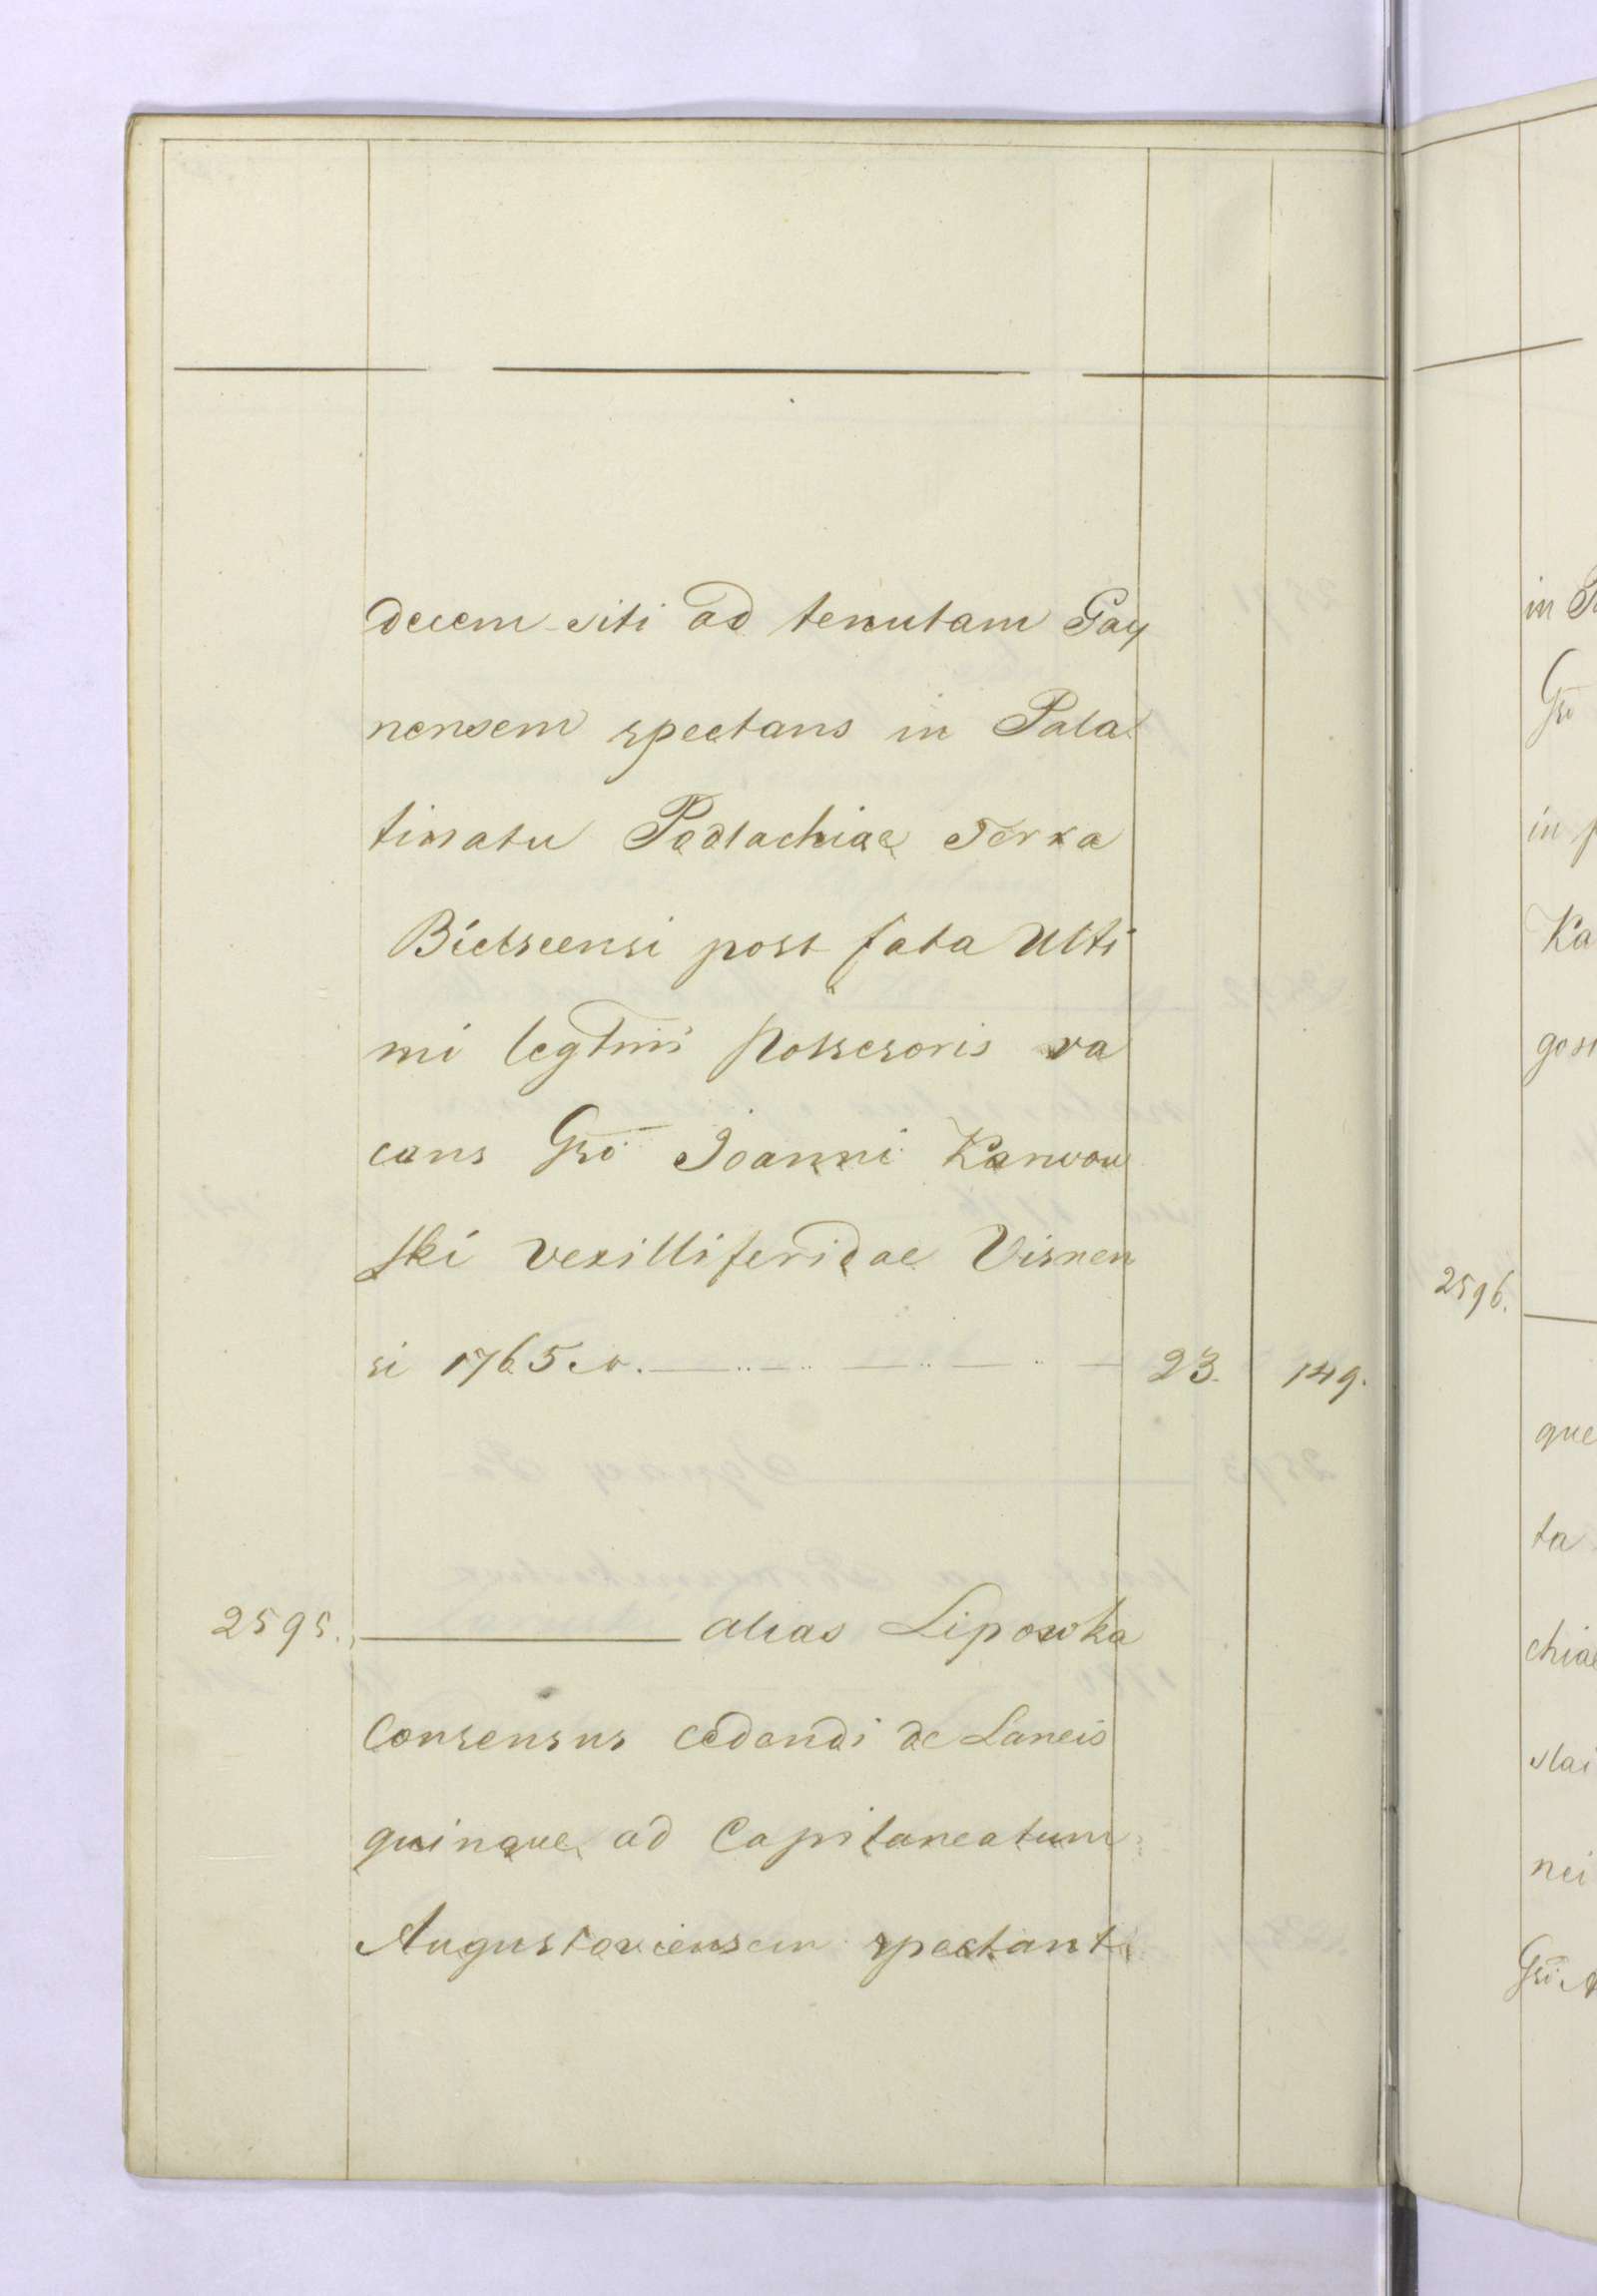 decem siti ad tenutam Gay
nensem spectans in Pala
tinatu Podlachiae Terra
Bielscensi post fata Ulti
mi legtmi possesoris va
cans Gso Joanni Karwow
ski vexilliferidae Visnen
si 1765 a. 23. 149.
2595. alias Lipowka
Consensus cedendi de Laneis
quinque ad Capitaneatum
Augustoviensem spectanti
in
Gso
in p
Ka
gosi
2596.
que
ta
chiae
slai
nei
Gso A